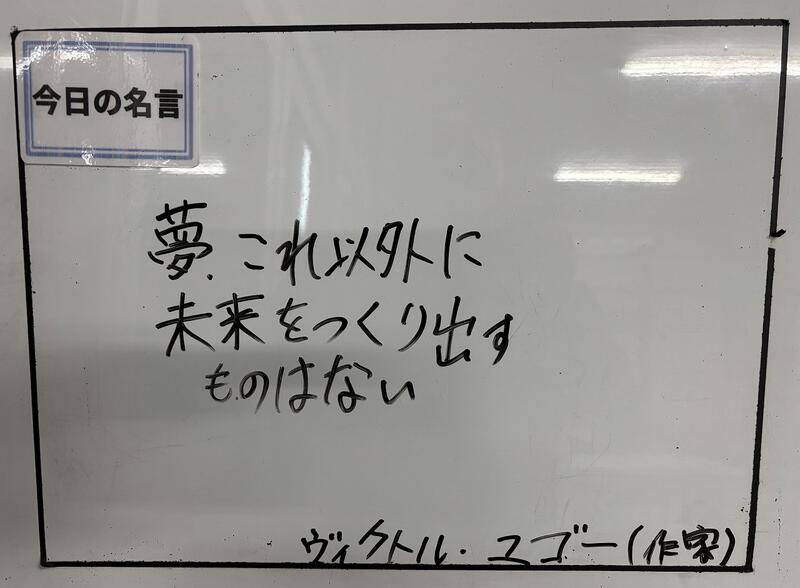 今日の名言
夢、これ以外に
未来をつくり出す
ものはない
ヴィクトル・ユゴー(作家)